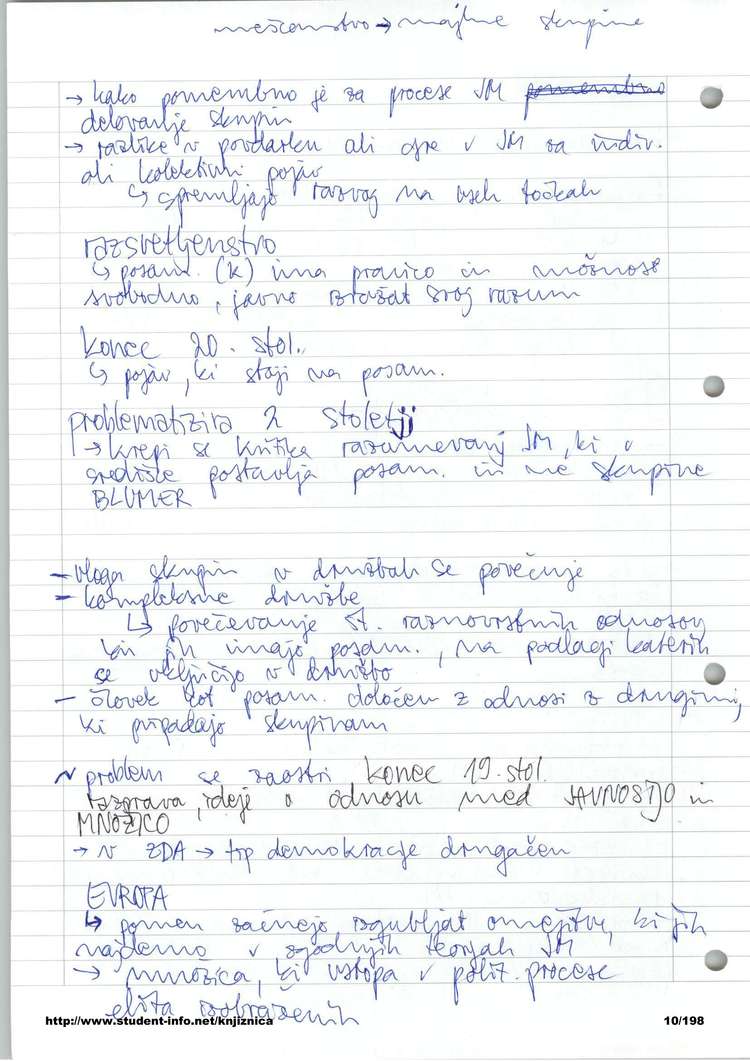 meščanstvo → majhne skupine
→ kako pomembno je za procese JM pomembno
delovanje skupin
→ razlike v povdarku ali gre v JM za indiv.
ali kolektivni pojav
↳ spremljajo razvoj na vseh točkah
razsvetljenstvo
↳ posam. (k) ima pravico in možnost
svobodno, javno izražat svoj razum
konec 20. stol.
↳ pojav, ki stoji na posam.
problematizira 2 stoletji
→ krepi se kritika razumevanj JM, ki v
središče postavlja posam. in ne skupine
BLUMER
- vloga skupin v družbah se povečuje
- kompleksne družbe
↳ povečevanje št. raznovrstnih odnosov
ki jih imajo posam., na podlagi katerih
se vključijo v družbo
- človek kot posam. določen z odnosi z drugimi,
ki pripadajo skupinam
~ problem se zaostri konec 19. stol.
razprava, ideje o odnosu med JAVNOSTJO in
MNOŽICO
→ v ZDA → tip demokracije drugačen
EVROPA
↳ pomen začnejo izgubljat omejitve, ki jih
najdemo v zgodnjih teorijah JM
→ množica, ki vstopa v polit. procese
elita izobraženih
http://www.student-info.net/knjiznica 10/198